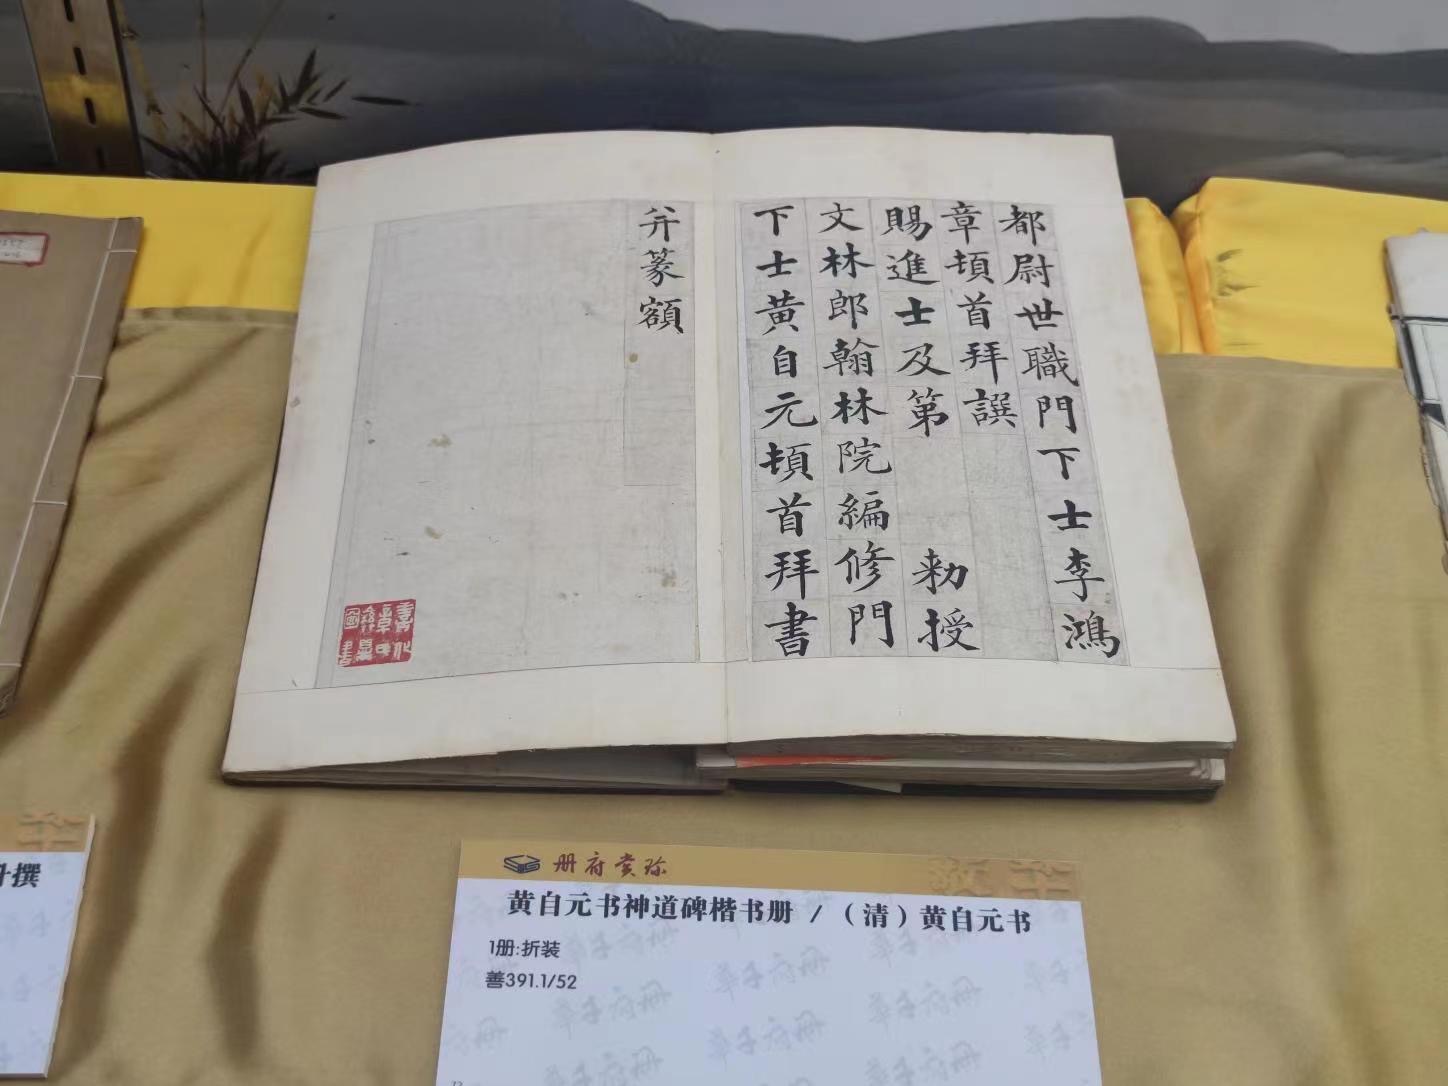 都尉世職門下士李鴻
章頓首拜譔
賜進士及第 勅授
文林郎翰林院編修門
下士黃自元頓首拜書
并篆額
册府赏珍
黄自元书神道碑楷书册 / （清）黄自元书
1册:折装
善391.1/52
撰